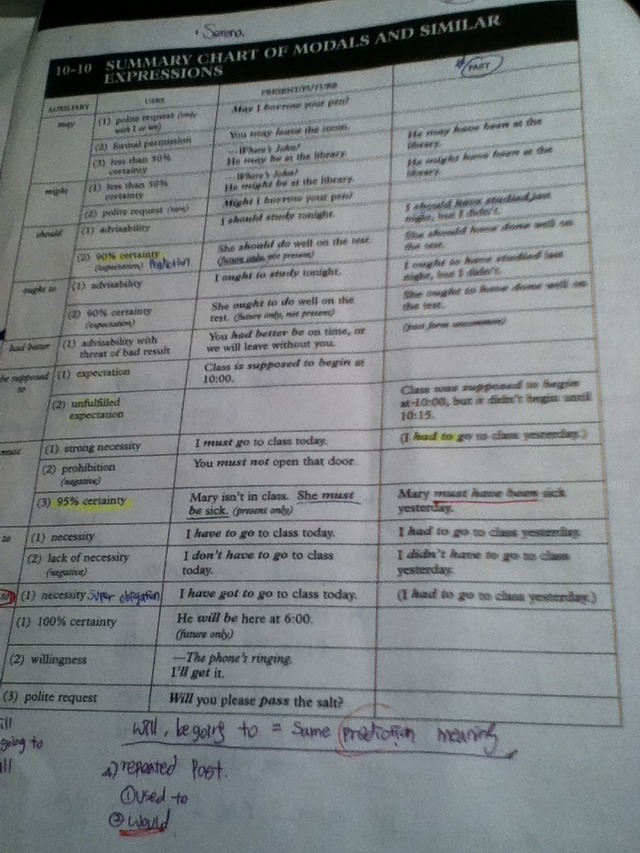 Serena
10-10 SUMMARY CHART OF MODALS AND SIMILAR
EXPRESSIONS
AUXILIARY USES PRESENT/FUTURE PAST
may (1) polite request (only May I borrow your pen?
with I or we)
(2) formal permission You may leave the room.
(3) less than 50% —Where's John? He may have been at the
certainty He may be at the library. library.
might (1) less than 50% —Where's John? He might have been at the
certainty He might be at the library. library.
(2) polite request (rare) Might I borrow your pen?
should (1) advisability I should study tonight. I should have studied last
night, but I didn't.
(2) 90% certainty She should do well on the test. She should have done well on
(expectation) Prediction (future only, not present) the test.
ought to (1) advisability I ought to study tonight. I ought to have studied last
night, but I didn't.
(2) 90% certainty She ought to do well on the She ought to have done well on
(expectation) test. (future only, not present) the test.
had better (1) advisability with You had better be on time, or (past form uncommon)
threat of bad result we will leave without you.
be supposed (1) expectation Class is supposed to begin at
to 10:00.
(2) unfulfilled Class was supposed to begin
expectation at 10:00, but it didn't begin until
10:15.
must (1) strong necessity I must go to class today. (I had to go to class yesterday.)
(2) prohibition You must not open that door.
(negative)
(3) 95% certainty Mary isn't in class. She must Mary must have been sick
be sick. (present only) yesterday.
to (1) necessity I have to go to class today. I had to go to class yesterday.
(2) lack of necessity I don't have to go to class I didn't have to go to class
(negative) today. yesterday.
to (1) necessity Super obligation I have got to go to class today. (I had to go to class yesterday.)
(1) 100% certainty He will be here at 6:00.
(future only)
(2) willingness —The phone's ringing.
I'll get it.
(3) polite request Will you please pass the salt?
will, be going to = Same prediction meaning
going to
4) repeated Past.
① Used to
② Would